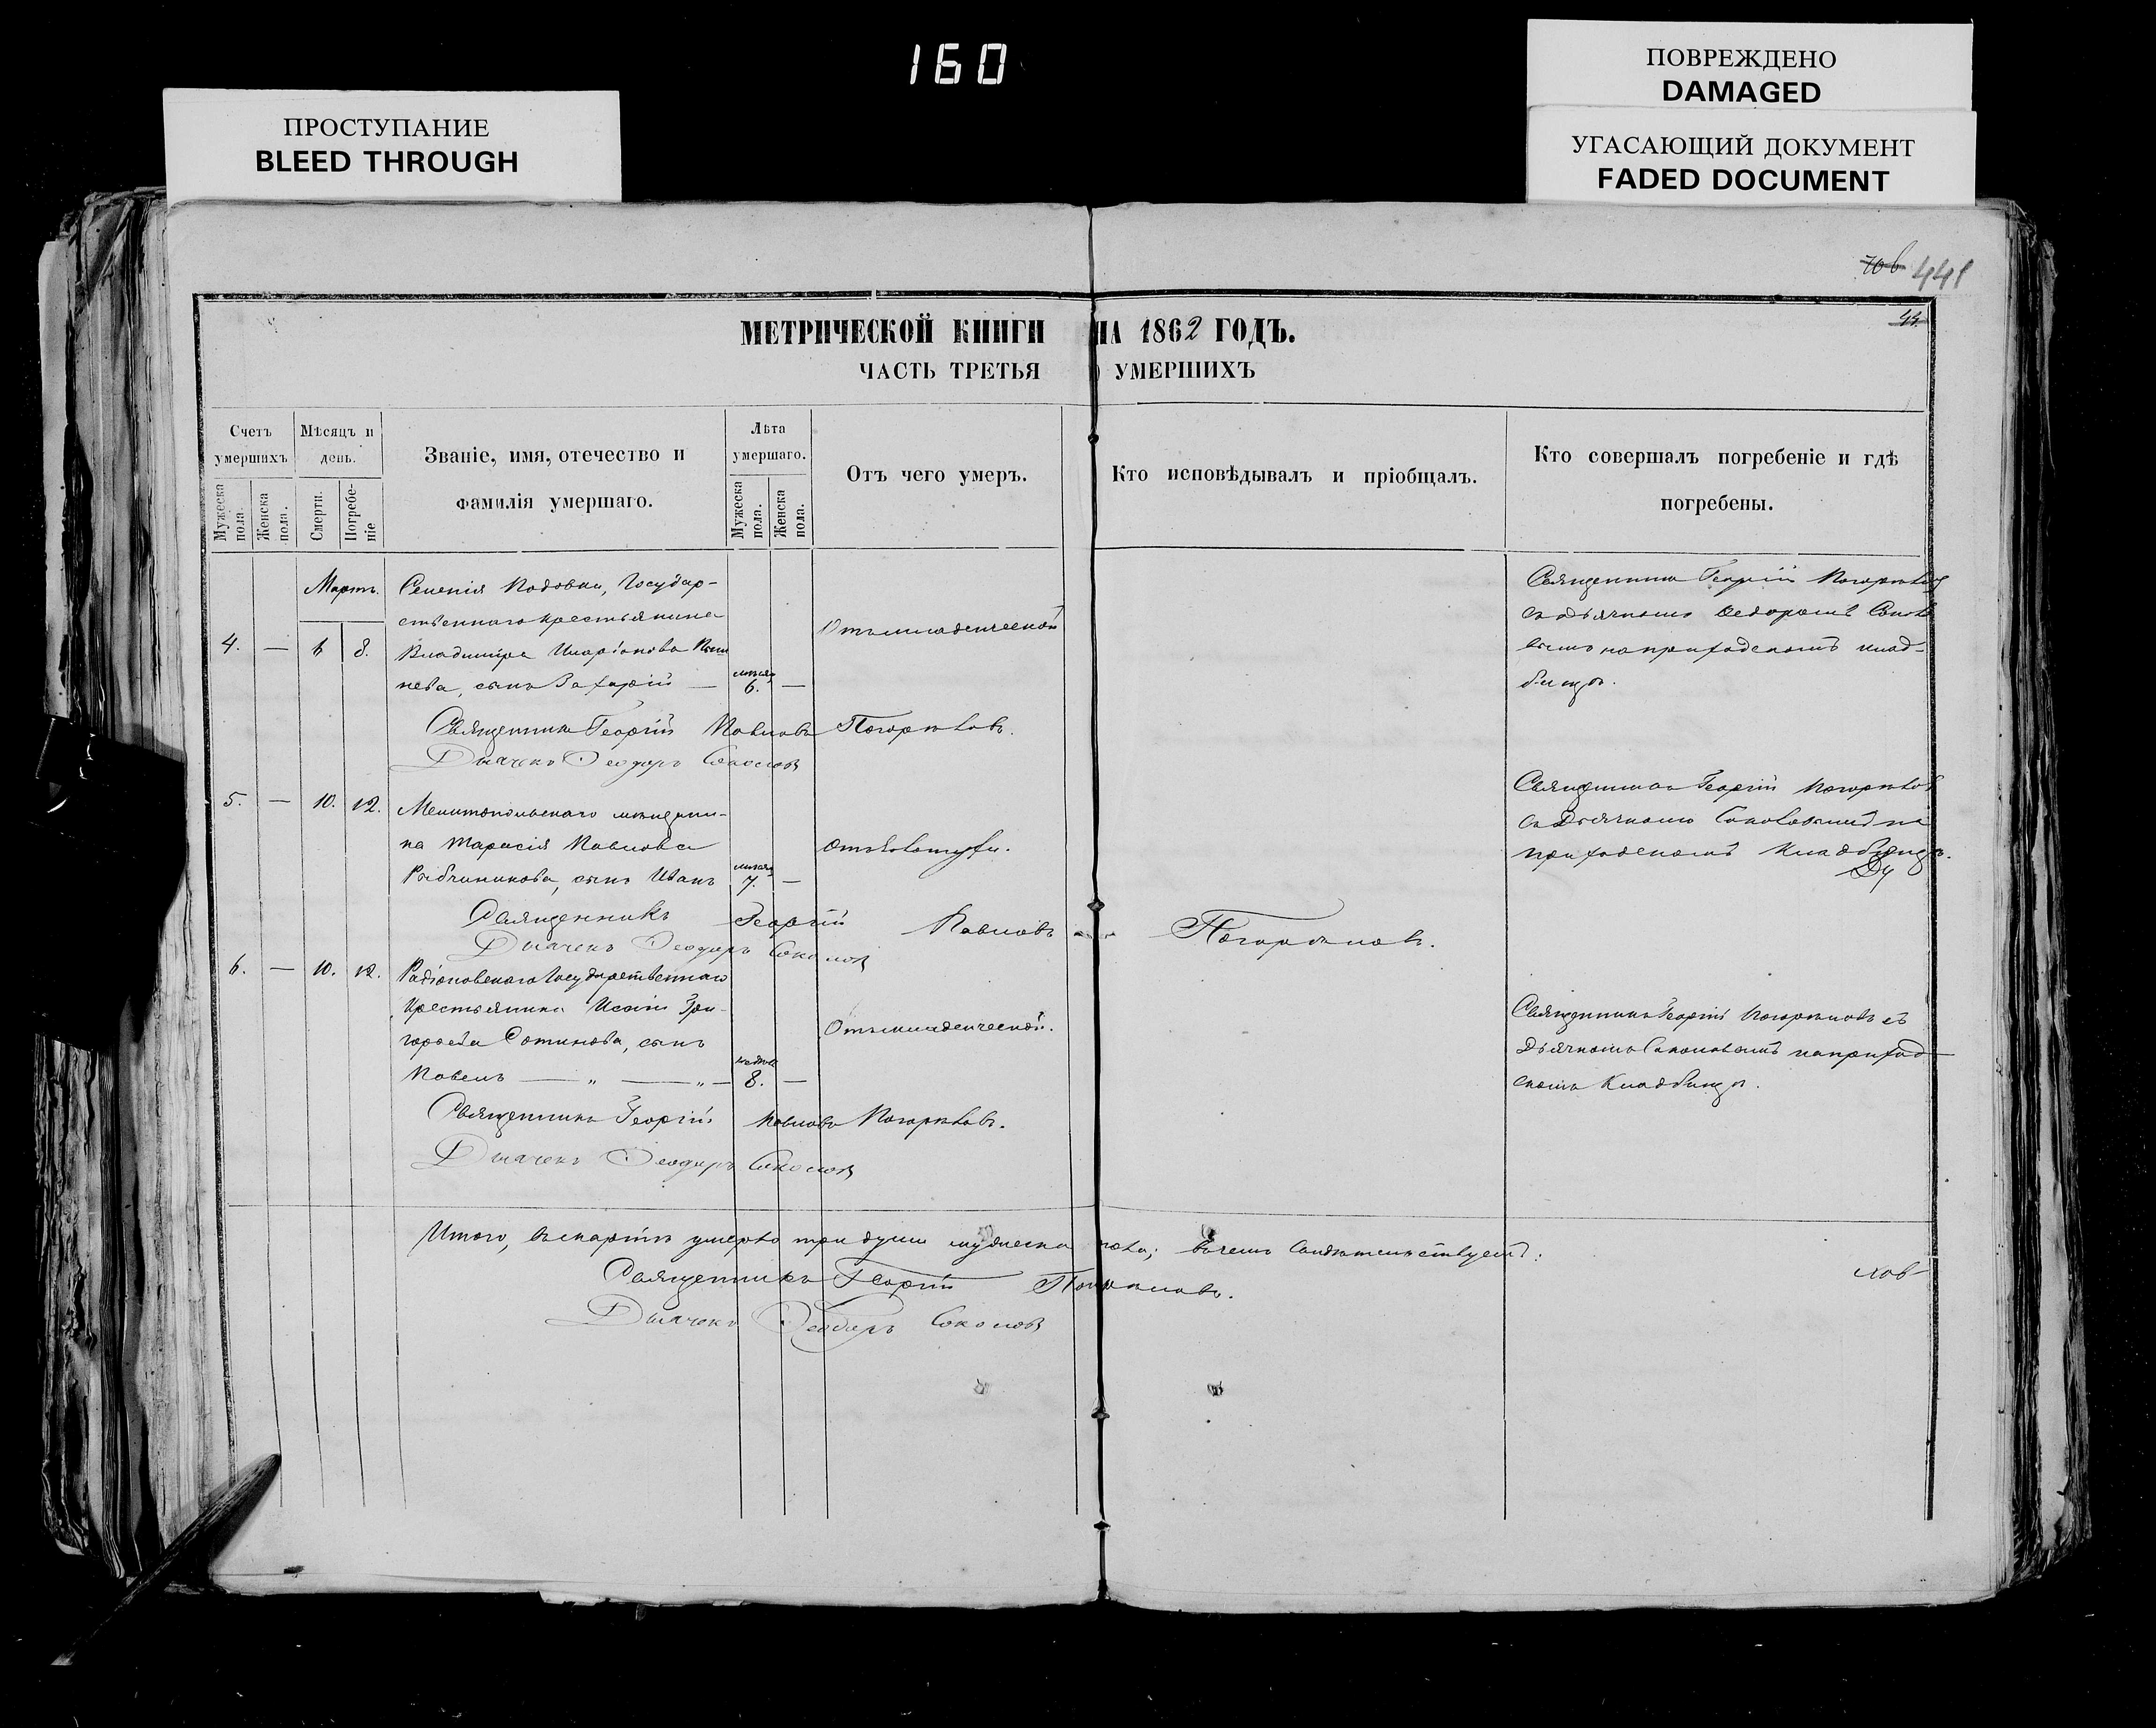 160
ПРОСТУПАНИЕ
BLEED THROUGH
ПОВРЕЖДЕНО
DAMAGED
УГАСАЮЩИЙ ДОКУМЕНТ
FADED DOCUMENT
441
МЕТРИЧЕСКОЙ КНИГИ НА 1862 ГОДЪ.
ЧАСТЬ ТРЕТЬЯ УМЕРШИХЪ
Счетъ умершихъ
Мужеска пола
Женска пола.
Мѣсяцъ и день.
Смерти.
Погребеніе
Званіе, имя, отечество и
фамилія умершаго.
Лѣта умершаго.
Мужеска пола.
Женска пола.
Отъ чего умеръ.
Кто исповѣдывалъ и пріобщалъ.
Кто совершалъ погребеніе и гдѣ
погребены.
Мартъ.
4. — 6 8.
Селенія Государ-
ственнаго крестьянина
Владиміра Иларіонова
нева, сынъ Захарій —
6. —
Отъ младенческой
Священникъ Георгій
съ дьячкомъ Ѳедоромъ
вымъ на приходскомъ клад-
бищѣ.
Священникъ Георгій Павловъ Погорѣловъ.
Дьячекъ Ѳеодоръ Соколовъ
5. — 10. 12.
Мелитопольскаго мѣщани-
на Тарасія Павлова
сынъ Иванъ
7. —
Священникъ Георгій Погорѣловъ
съ дьячкомъ на
приходскомъ кладбищѣ.
Священникъ Георгій Павловъ Погорѣловъ.
Дьячекъ Ѳеодоръ Соколовъ
6. — 10. 12.
Радіоновскаго Государственнаго
крестьянина Исаіи Гри-
горьева сынъ
Павелъ — „ — „ —
8. —
Отъ младенческой.
Священникъ Георгій Погорѣловъ съ
дьячкомъ Соколовымъ на приход-
скомъ кладбищѣ.
Священникъ Георгій Павловъ Погорѣловъ.
Дьячекъ Ѳеодоръ Соколовъ
Итого, въ мартѣ умерло три души мужеска пола; въ чемъ свидѣтельствуемъ:
Священникъ Георгій Погорѣловъ.
Дьячекъ Ѳеодоръ Соколовъ